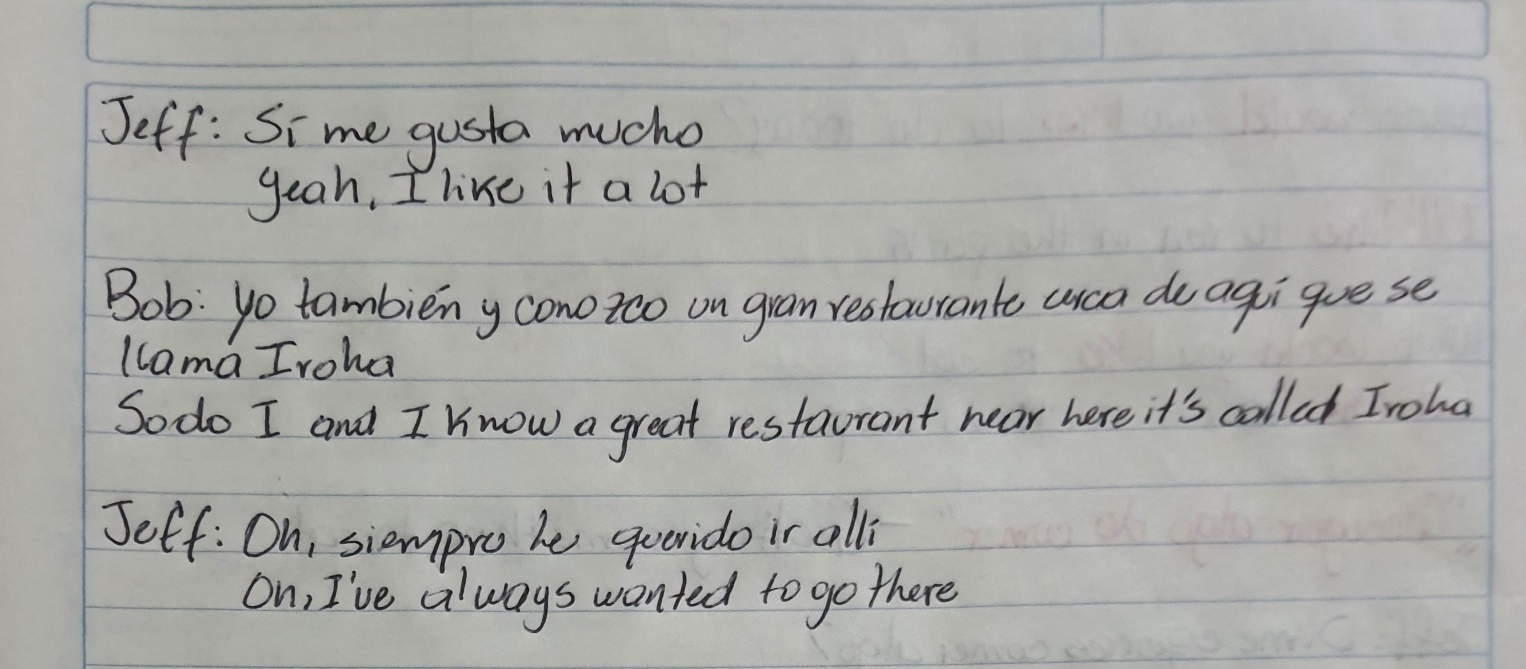 Jeff: Sí me gusta mucho
yeah, I like it a lot
Bob: yo también y conozco un gran restaurante cerca de aquí que se
llama Iroha
So do I and I know a great restaurant near here it's called Iroha
Jeff: Oh, siempre he querido ir alli
Oh, I've always wanted to go there